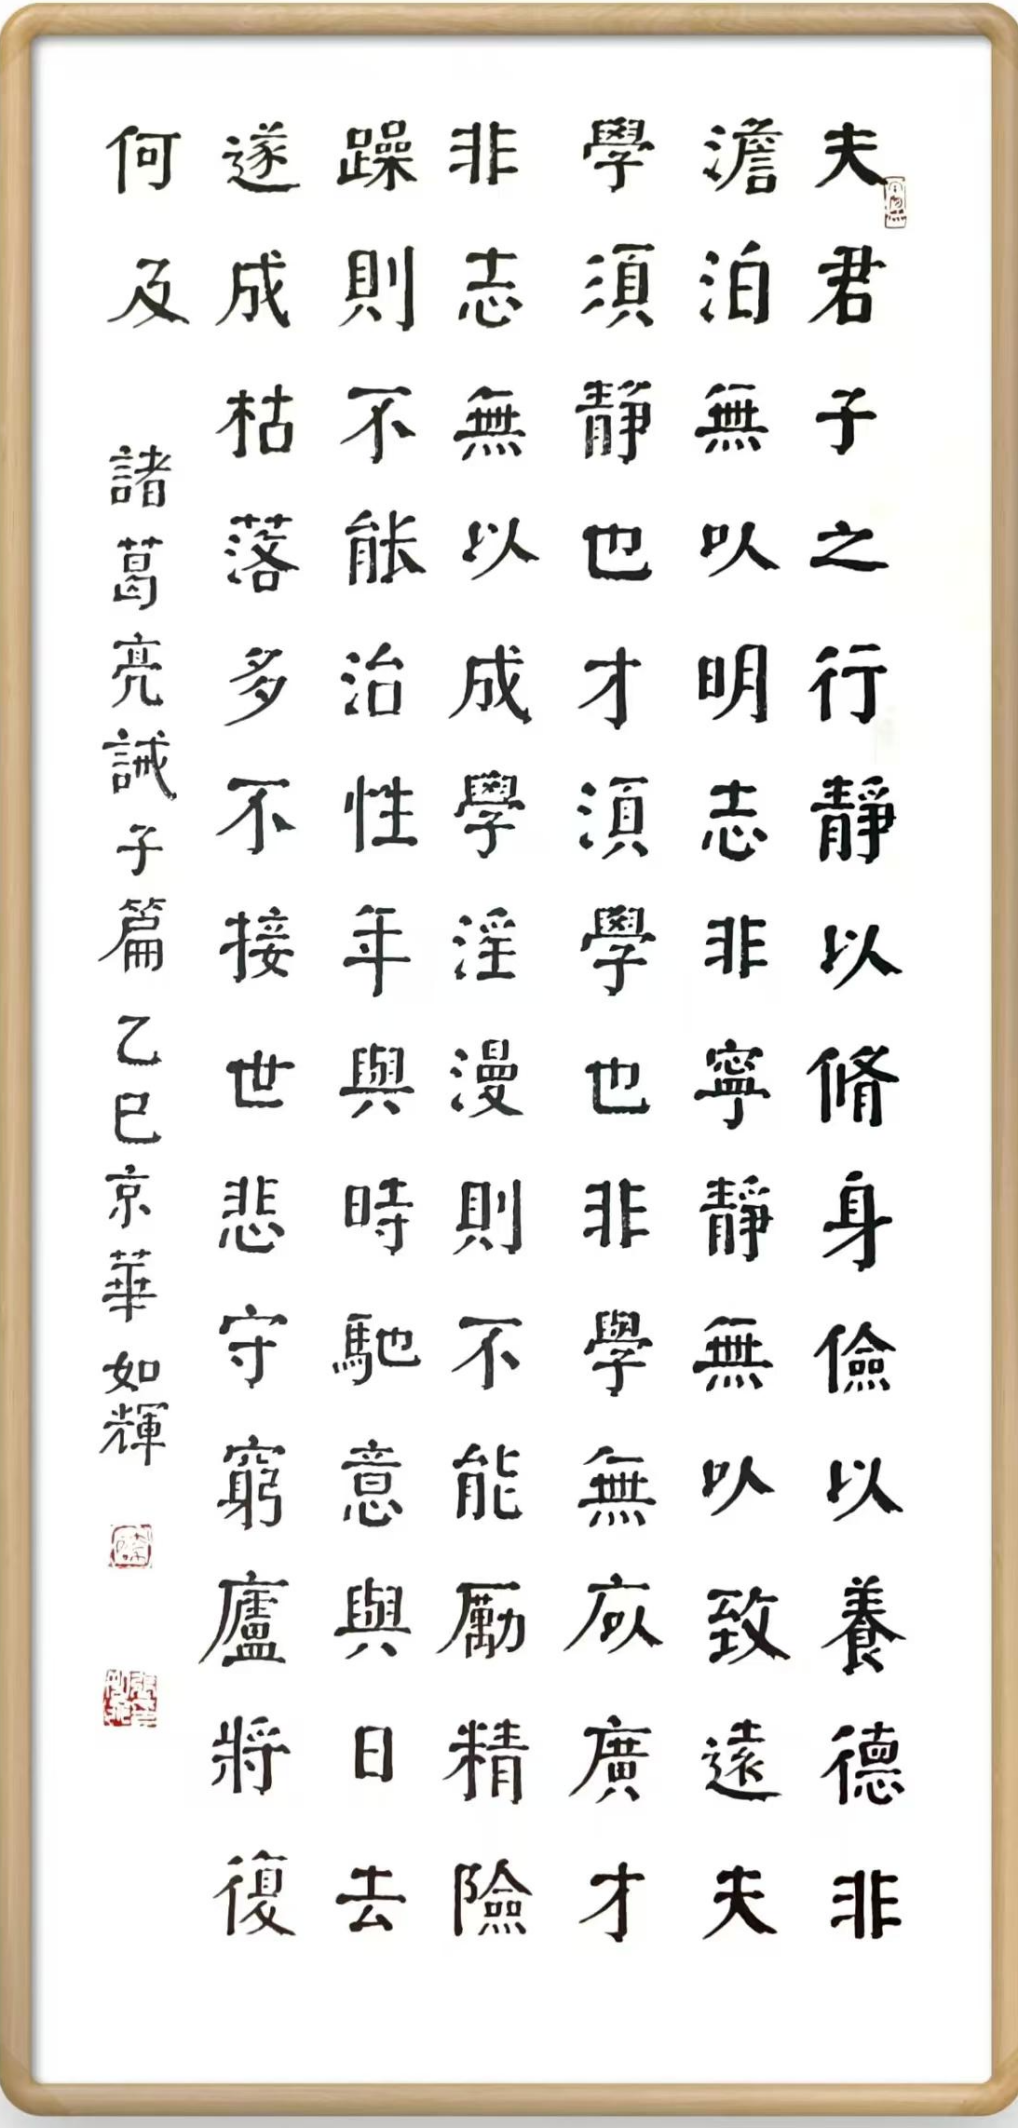 夫君子之行靜以脩身儉以養德非
澹泊無以明志非寧靜無以致遠夫
學須靜也才須學也非學無以廣才
非志無以成學淫漫則不能勵精險
躁則不能治性年與時馳意與日去
遂成枯落多不接世悲守窮廬將復
何及
諸葛亮誡子篇乙巳京華如輝